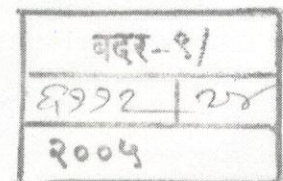 बदर-९/
६११२ | २४
२००५